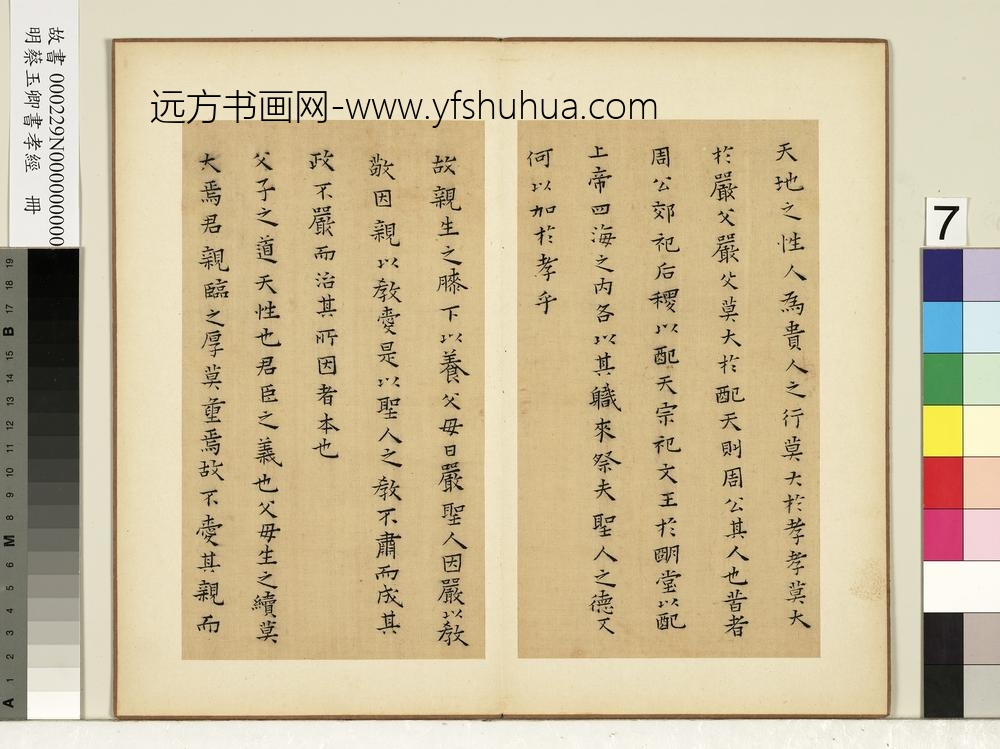 故書 000229N000000000
明蔡玉卿書孝經 冊
远方书画网-www.yfshuhua.com
7
天地之性人為貴人之行莫大於孝孝莫大
於嚴父嚴父莫大於配天則周公其人也昔者
周公郊祀后稷以配天宗祀文王於明堂以配
上帝四海之内各以其職來祭夫聖人之德又
何以加於孝乎
故親生之膝下以養父母日嚴聖人因嚴以教
敬因親以教愛是以聖人之教不肅而成其
政不嚴而治其所因者本也
父子之道天性也君臣之義也父母生之續莫
大焉君親臨之厚莫重焉故不愛其親而
A 1 2 3 4 5 6 M 8 9 10 11 12 13 14 15 B 17 18 19